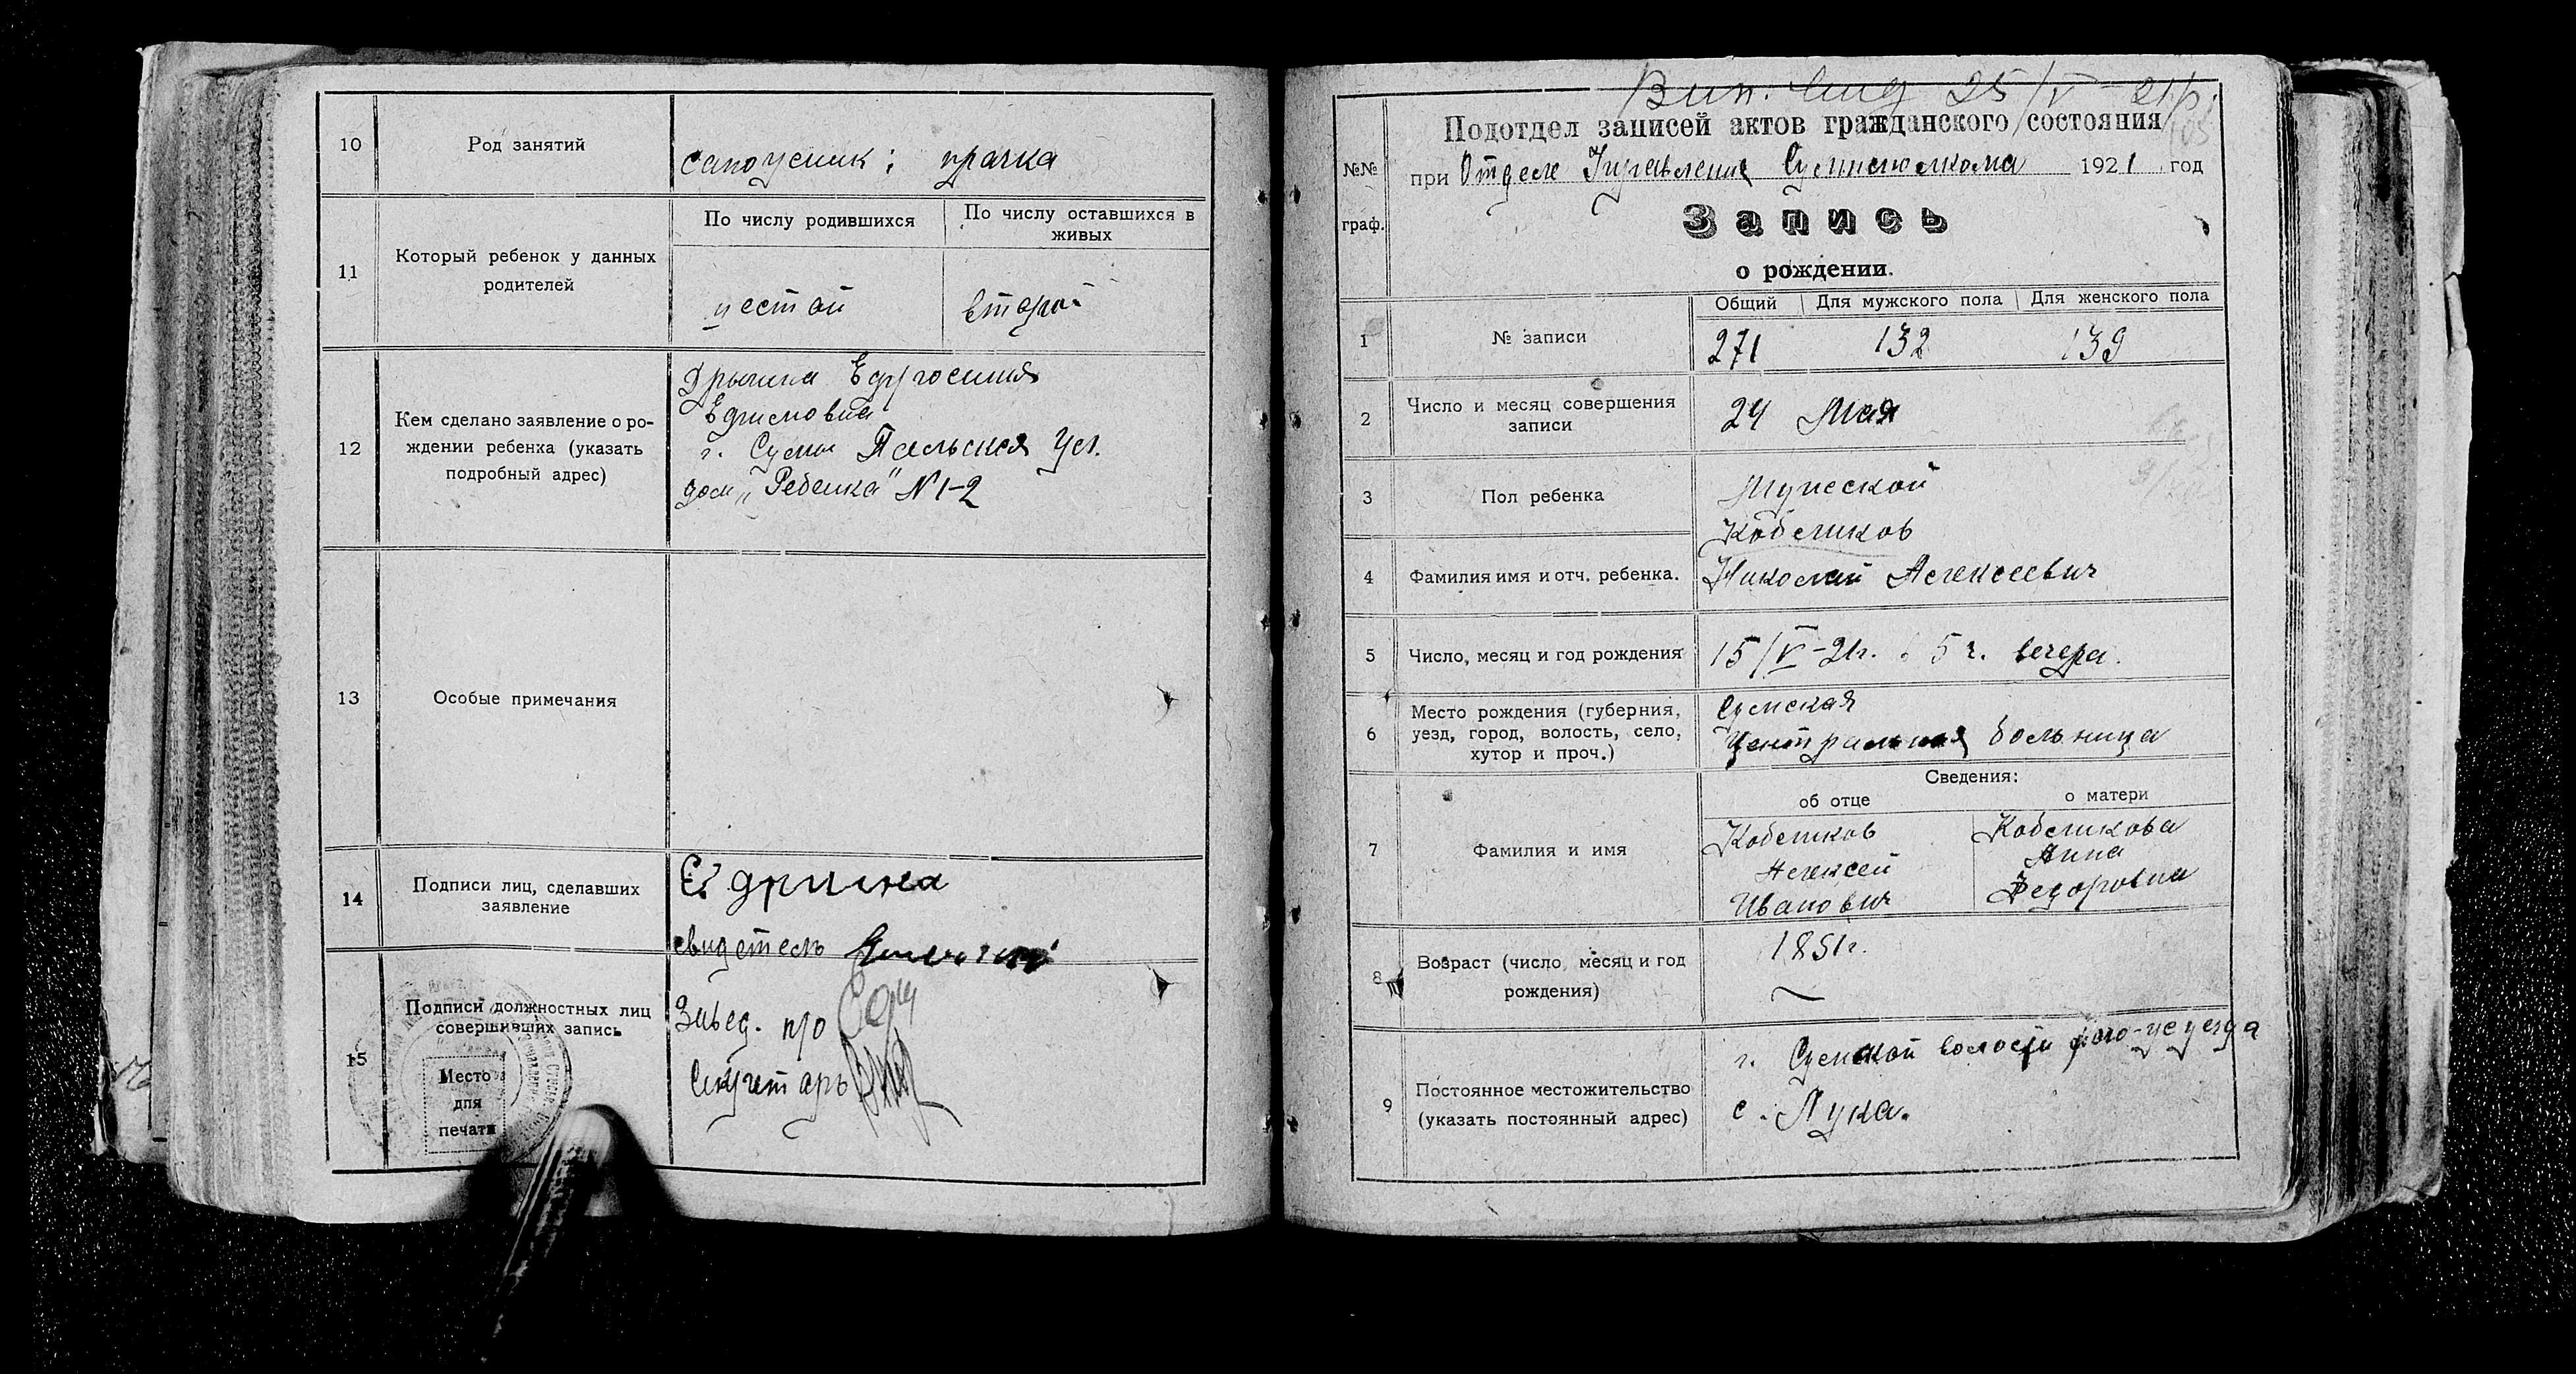 10
Род занятий
сапожник; прачка
11
Который ребенок у данных
родителей
По числу родившихся
По числу оставшихся в
живых
шестой
второй
12
Кем сделано заявление о ро-
ждении ребенка (указать
подробный адрес)
Ефросиния
Ефимовна
г. Сумы Псельская ул.
дом „Ребенка" № 1-2
13
Особые примечания
14
Подписи лиц, сделавших
заявление
свидетель
15
Подписи должностных лиц
совершивших запись
Место
для
печати
Завед. п/о
Секретарь
25/V - 21 р.
Подотдел записей актов гражданского состояния
№№
граф.
при Отделе Управления Сумисполкома 1921 год
Запись
о рождении.
1
№ записи
Общий
Для мужского пола
Для женского пола
271
132
139
2
Число и месяц совершения
записи
24 Мая
3
Пол ребенка
Мужской
4
Фамилия имя и отч. ребенка.
Кобеликов
Николай Алексеевич
5
Число, месяц и год рождения
15/V-21г. в 5 ч. вечера.
6
Место рождения (губерния,
уезд, город, волость, село,
хутор и проч.)
Сумская
Центральная больница
7
Фамилия и имя
Сведения:
об отце
о матери
Кобеликов
Алексей
Иванович
Кобеликова
Анна
Федоровна
8
Возраст (число, месяц и год
рождения)
9
Постоянное местожительство
(указать постоянный адрес)
г. Сумской волости того-же уезда
с. Лука.